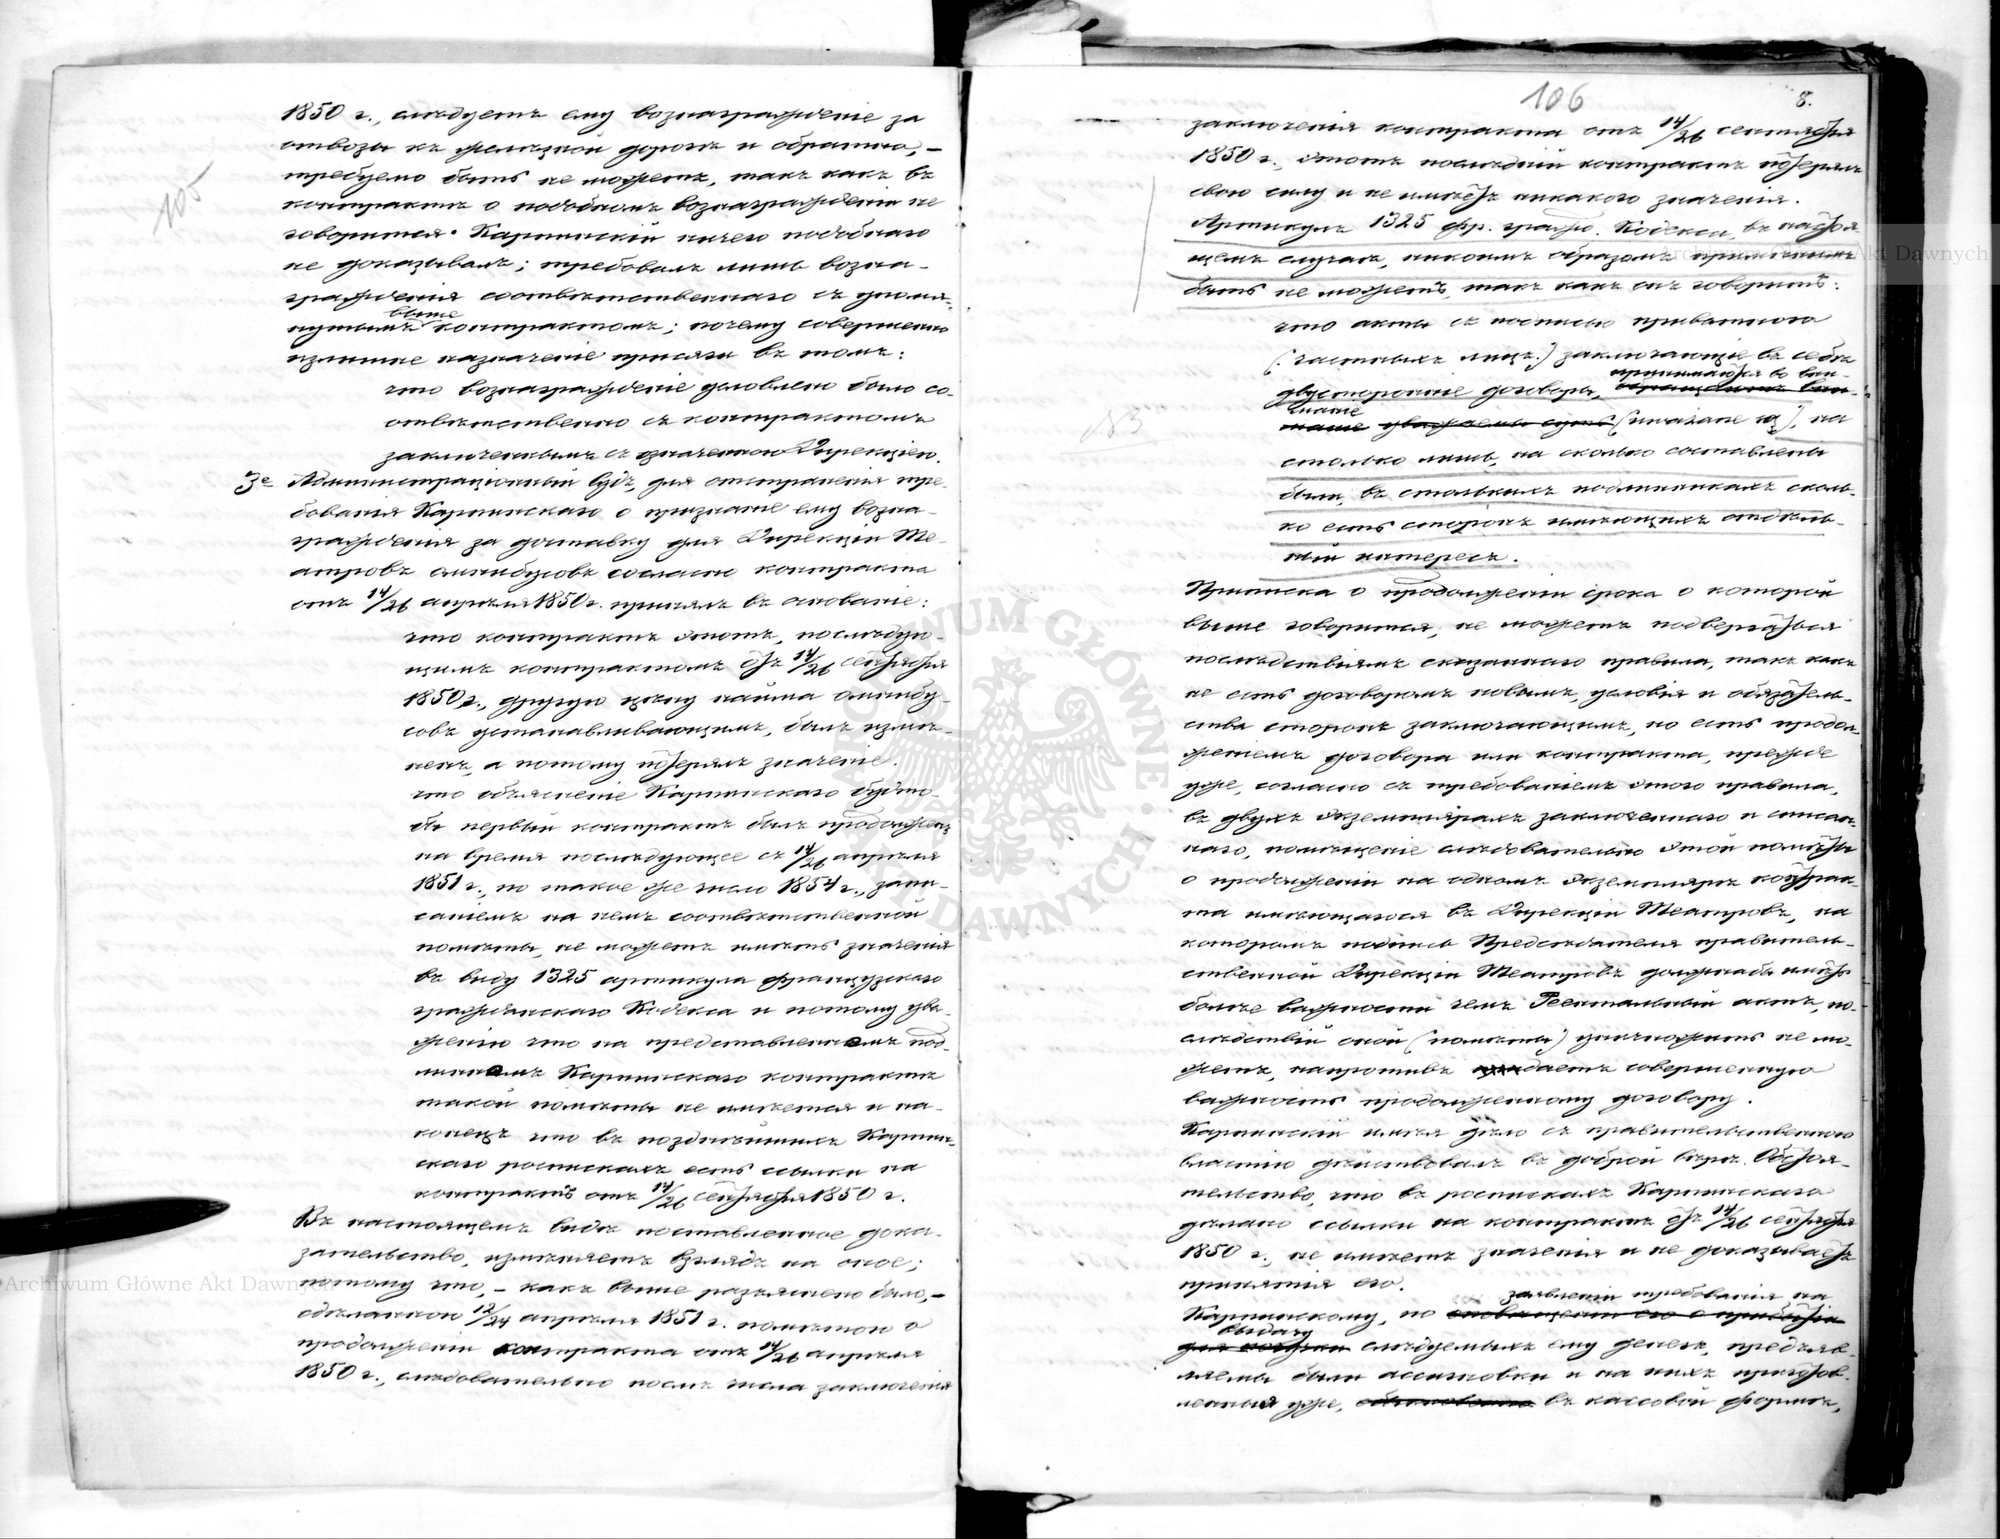 105
1850 г., следуетъ ему вознагражденіе за
отвозы къ желѣзной дорогѣ и обратно, –
требуемо быть не можетъ, такъ какъ въ
контрактѣ о подобномъ вознагражденіи не
говорится. Карпинскій ничего подобнаго
не доказывалъ; требовалъ лишь возна-
гражденія соотвѣтственнаго съ упомя-
выше
нутымъ контрактомъ; почему совершенно
излишне назначеніе присяги въ томъ:
что вознагражденіе условлено было со-
отвѣтственно съ контрактомъ
заключеннымъ съ означенною Дирекціею.
3е Администраціонный Судъ, для отстраненія тре-
бованія Карпинскаго о признаніе ему возна-
гражденія за доставку для Дирекціи Те-
атровъ омнибусовъ согласно контракта
отъ 14/26 апрѣля 1850 г. принялъ въ основаніе:
что контрактъ этотъ, послѣдую-
щимъ контрактомъ отъ 14/26 сентября
1850 г., другую цѣну найма омнибу-
совъ устанавливающимъ, былъ измѣ-
ненъ, а потому потерялъ значеніе.
что объясненіе Карпинскаго будто-
бы первый контрактъ былъ продолженъ
на время послѣдующее съ 14/26 апрѣля
1851 г., по такое же число 1854 г., запи-
саніемъ на немъ соотвѣтственной
помѣты, не можетъ имѣть значенія
въ виду 1325 артикула французскаго
гражданскаго Кодекса и потому ува-
женію что на представленномъ под-
линномъ Карпинскаго контрактѣ
такой помѣты не имѣется и на-
конецъ что въ позднѣйшихъ Карпин-
скаго роспискахъ есть ссылки на
контрактъ отъ 14/26 сентября 1850 г.
Въ настоящемъ видѣ поставленное дока-
зательство, измѣняетъ взглядъ на оное;
потому что, – какъ выше разъяснено было, –
сдѣланною 12/24 апрѣля 1851 г. помѣтою о
продолженіи контракта отъ 14/26 апрѣля
1850 г., слѣдовательно послѣ числа заключенія
106
8.
заключенія контракта отъ 14/26 сентября
1850 г., этотъ послѣдній контрактъ потерялъ
свою силу и не имѣетъ никакого значенія.
Артикулъ 1325 фр. гражд. Кодекса, въ настоя
щемъ случаѣ, никоимъ образомъ примѣнимъ
быть не можетъ, такъ какъ онъ говоритъ:
что акты съ подписью приватнаго
(: частныхъ лицъ:) заключающіе въ себѣ
принимаются во вни-
двусторонніе договоры,
маніе
на
столько лишь, на сколько составлены
были, въ столькихъ подлинникахъ сколь-
ко есть сторонъ имѣющихъ отдѣль-
ный интересъ.
№3
Приписка о продолженіи срока о которой
выше говорится, не можетъ подвергаться
послѣдствіямъ сказаннаго правила, такъ какъ
не есть договоромъ новымъ, условія и обязатель-
ства сторонъ заключающимъ, но есть продол-
женіемъ договора или контракта, прежде
уже, согласно съ требованіемъ этого правила,
въ двухъ экземплярахъ заключеннаго и списан-
наго, помѣщеніе слѣдовательно этой помѣты
о продолженіи на одномъ экземплярѣ контрак-
та имѣющагося въ Дирекціи Театровъ, на
которомъ подпись Предсѣдателя правитель-
ственной Дирекціи Театровъ должнабы имѣть
болѣе важности чемъ Реентальный актъ, по-
слѣдствій оной (помѣты) уничтожить не мо-
жетъ, напротивъ даетъ совершенную
важность продолженному договору.
Карпинскій имѣя дѣло съ правительственною
властію дѣйствовалъ въ доброй вѣрѣ. Обстоя-
тельство, что въ роспискахъ Карпинскаго
дѣлано ссылки на контрактъ отъ 14/26 сентября
1850 г., не имѣетъ значенія и не доказываетъ
принятія его.
заявленіи требованія на
Карпинскому, по
выдачу
слѣдуемыхъ ему денегъ, предъяв-
ляемы были ассигновки и на нихъ приготов-
ленныя уже, въ кассовой формѣ,